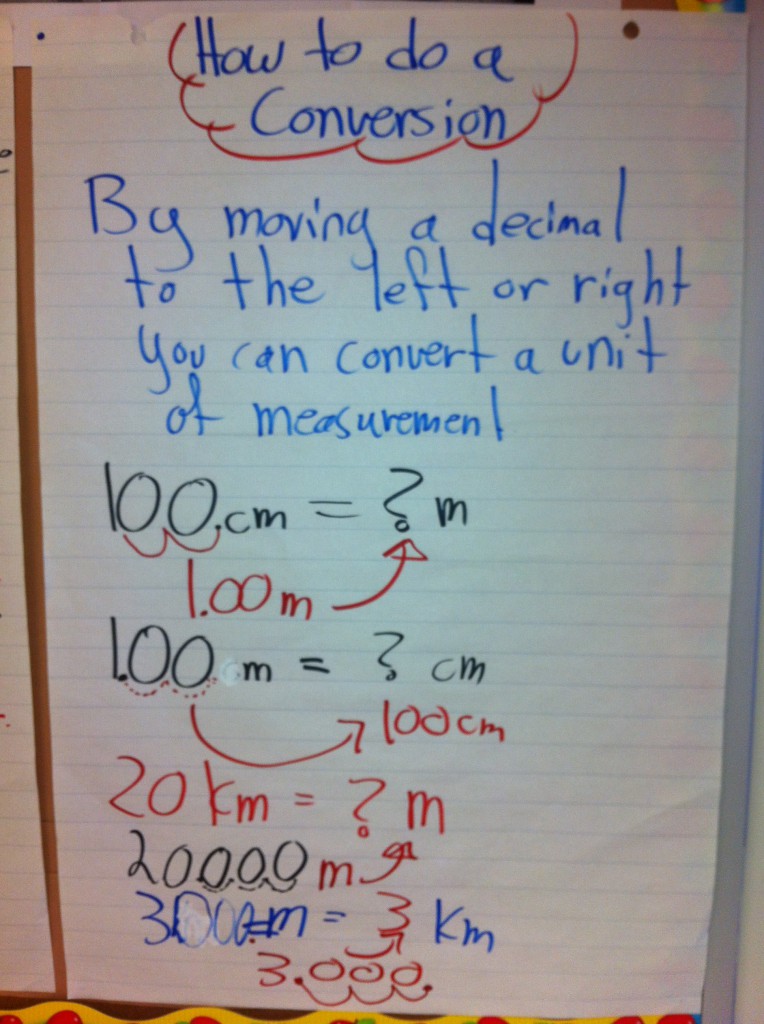 How to do a
Conversion
By moving a decimal
to the left or right
you can convert a unit
of measurement
100.cm = ? m
1.00m
1.00 m = ? cm
100cm
20 Km = ? m
20000 m
3000.m = 3 Km
3.000.